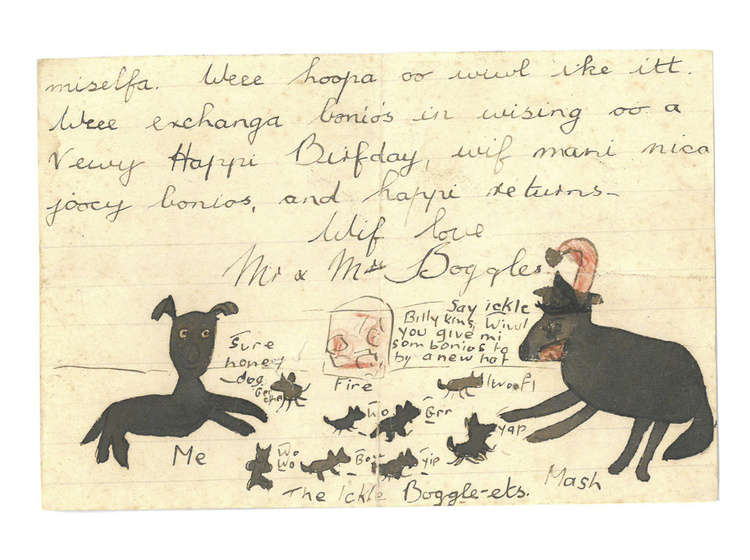 miselfa. Weee hoopa oo wiwl ike itt.
Weee exchanga bonio's in wising oo a
Vewy Happi Birfday, wif mani nica
joocy bonios, and happi returns-
Wif love
Mr & Mrs Boggles.
Say ickle
Billykins, Wiwl
you give mi
som bonios to
by a new hat
Sure
honey
dog
Fire
Woof!
Wo
Grr
yap
Me
Wo
Wo
Bow
yip
Mash
The Ickle Boggle-ets.